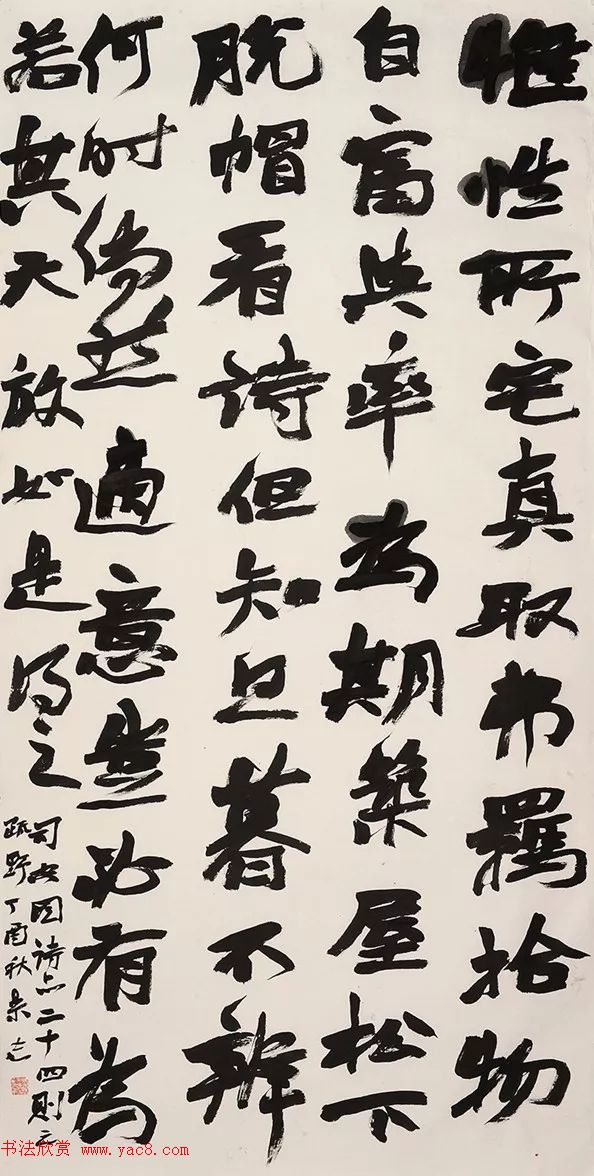 惟性所宅真取弗羈拾物
自富與率為期築屋松下
脱帽看詩但知旦暮不辨
何時倘然適意豈必有為
若其天放如是得之
司空图詩品二十四則之
疏野丁酉秋
书法欣赏 www.yac8.com